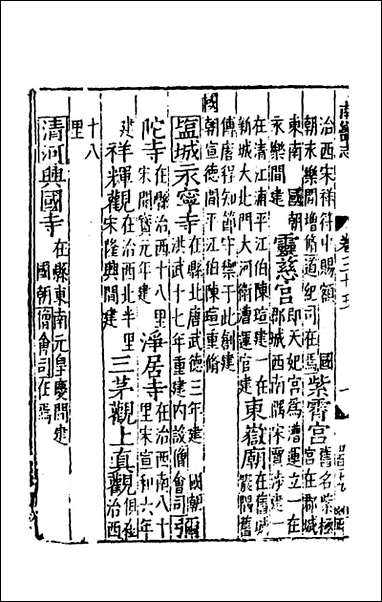 南畿志 卷之二十
治西宋祥符中賜額 國
朝末樂間增修道紀司在焉 紫霄宮 舊名紫極宮在郡城
東南 國朝永樂間建 靈慈宮 即天妃宮爲漕運立一在郡城西南隅宋
在清江浦平江伯陳瑄建一在新城大北門大河衛漕運官建 東嶽廟 在舊城
傳唐程知節守禦于此創建
國朝宣德間平江伯陳瑄重修
鹽城永寧寺 在縣北唐武德三年建 國朝洪武十七年重建内設僧會司 彌
陀寺 在縣治西十八里宋開寶元年建 淨居寺 在治西南八十里宋宣和六年
建 祥輝觀 在治西北半里宋隆興間建 三茅觀 上真觀 俱在治西
十八
里
清河興國寺 在縣東南元皇慶間建 國朝僧會司在焉